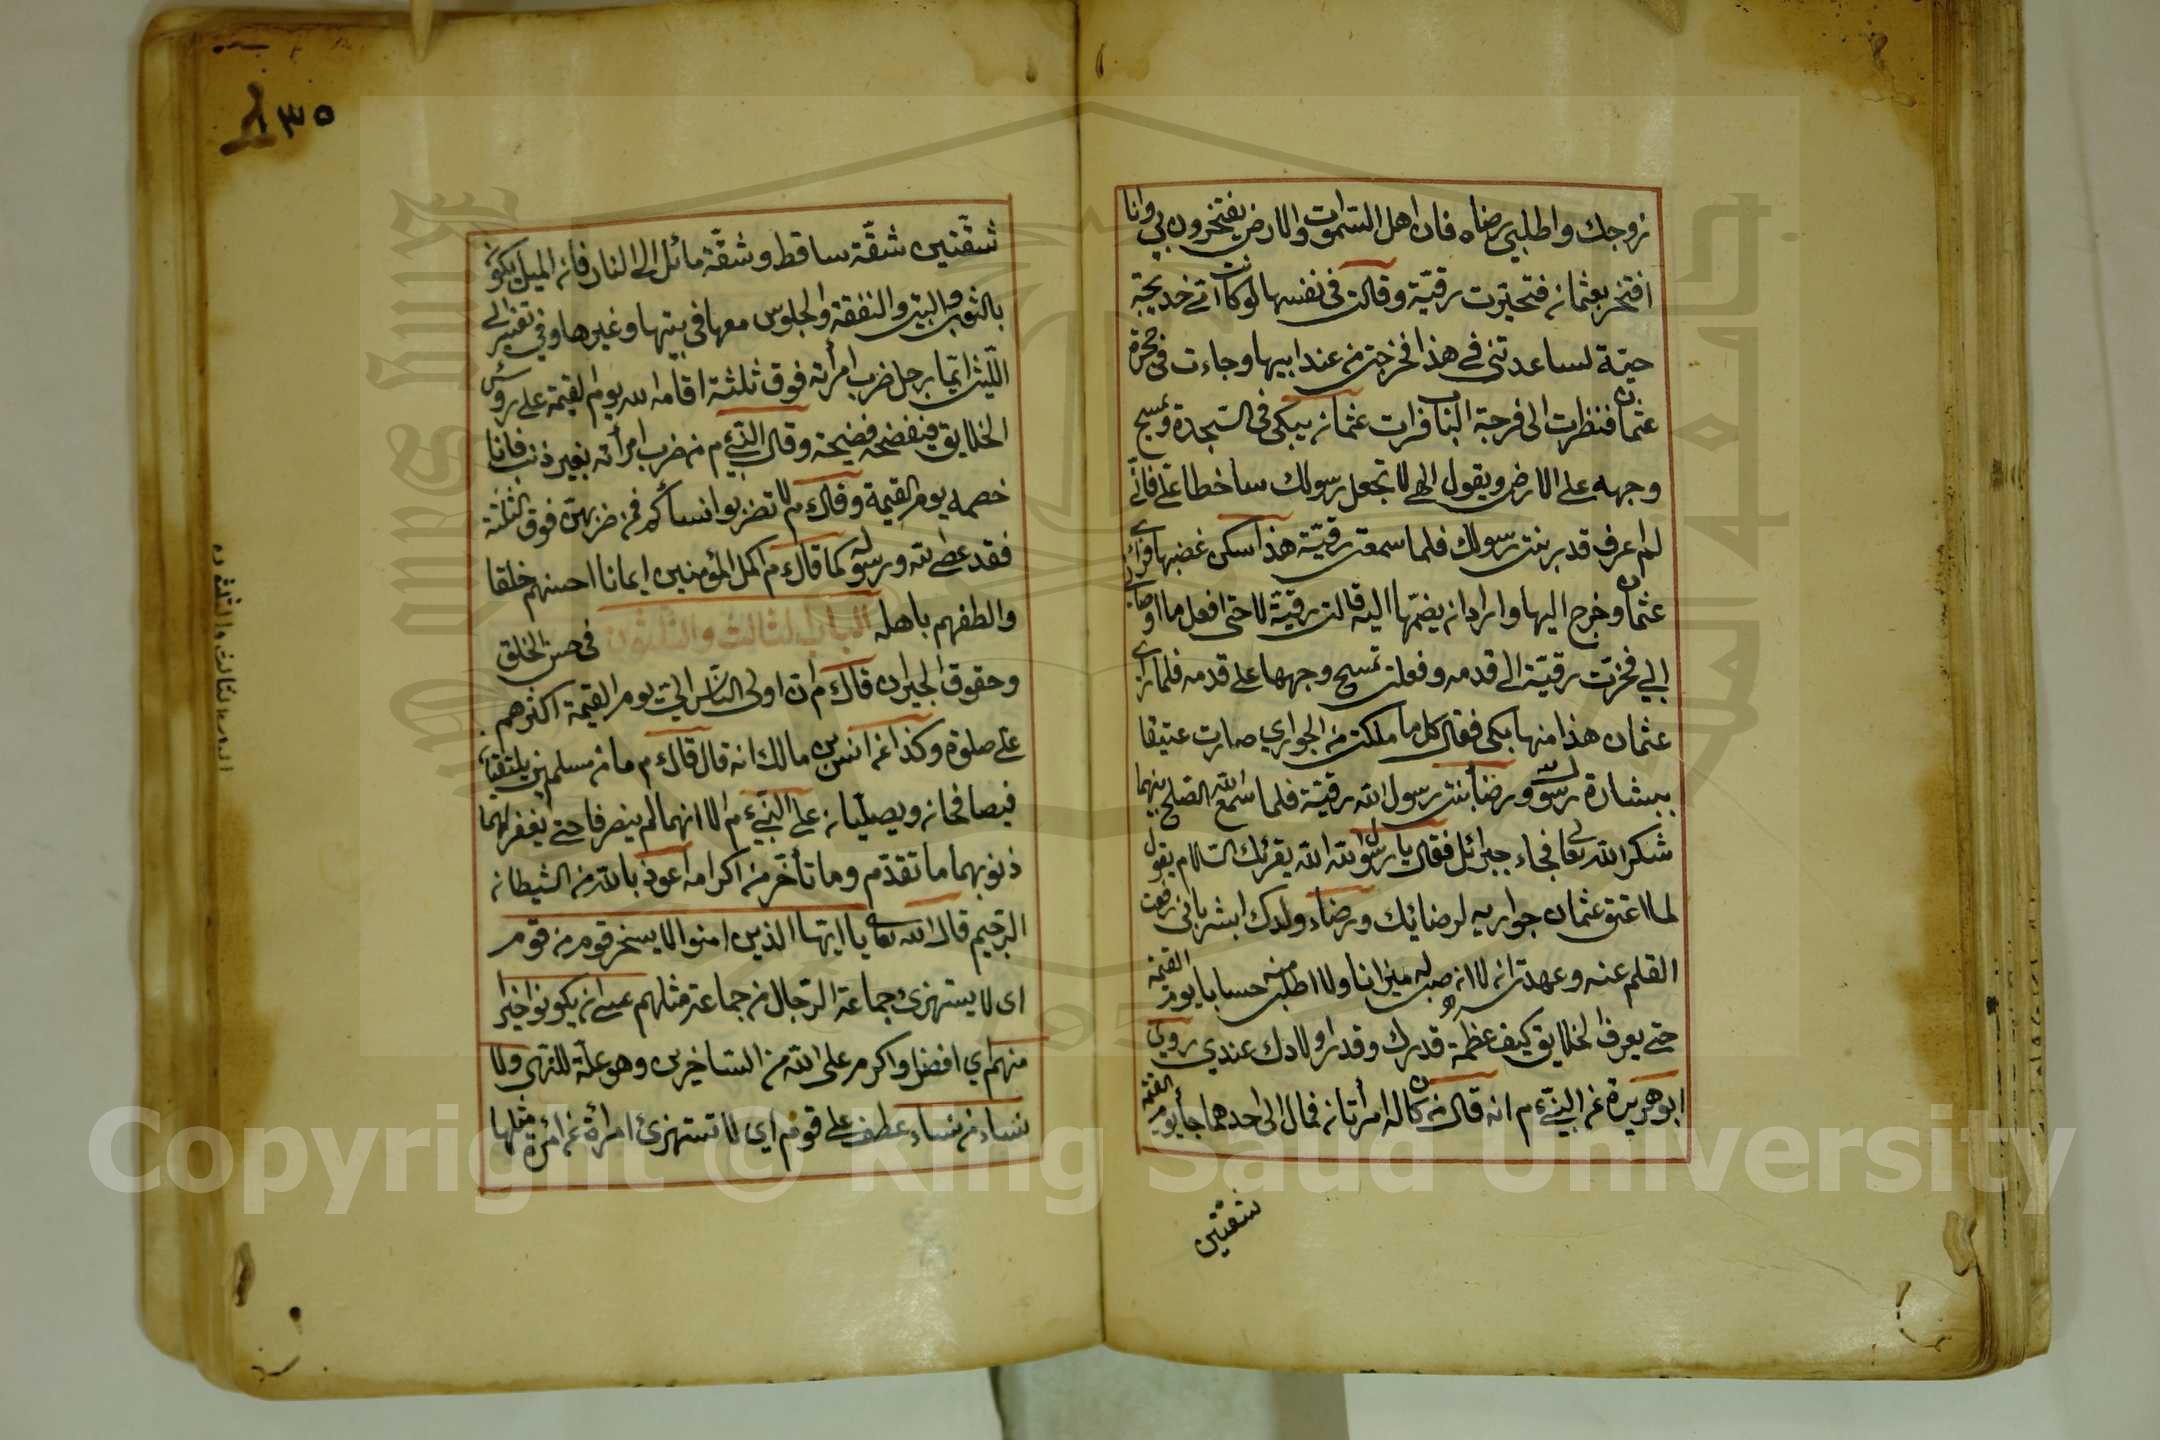 زوجك واطلبي رضاه فان اهل السموات والارض يفتخرون بي وانا
افتخر بعثمان فتحيّرت رقيّة وقالت في نفسها لو كانت اتى خديجة
حيّة لساعدتني في هذا فخرجت من عند ابيها وجاءت في حجرة
عثمان فنظرت الى فرجة الباب فرات عثمان يبكي في السجدة ويمسح
وجهه على الارض ويقول الهي لا تجعل رسولك ساخطا عليّ فانّي
لم اعرف قدر بنت رسولك فلما سمعت رقيّة هذا سكن غضبها فرأى
عثمان وخرج اليها واراد ان يضمّها اليه قالت رقيّة لا حتى افعل ما اوصاني
ابي فخرّت رقيّة الى قدمه وفعلت تمسح وجهها على قدمه فلما رأى
عثمان هذا منها بكى فقال كل ما ملكت من الجواري صارت عتيقا
ببشارة رسول ورضا بنت رسول الله رقيّة فلما سمع رسول الله الصلح بينهما
شكر الله تعالى فجاء جبرائل فقال يا رسول الله الله يقرئك السلام يقول
لما اعتق عثمان جواريه لرضائك ورضاء ولدك ابشر باني رفعت
القلم عنه وعهدت ان لا انصب له ميزانا ولا اطلب منه حسابا يوم القيمة
حتى يعرف الخلايق كيف عظمة قدرك وقدر اولادك عندي روي
ابو هريرة عن النبيّ م انه قال من كان له امرأتان فمال الى احدهما جاء يوم القيمة
شقتين
١٣٥
شقّتين شقّة ساقط وشقّة مائل الى النار فان الميل يكون
بالثوب والبيت والنفقة والجلوس معها في بيتها وغيرها وفي تفسير ابي
اللّيث ايّما رجل ضرب امرأته فوق ثلثة اقامه الله يوم القيمة على رؤس
الخلايق فيفضحه فضيحة وقال النّبيّ م من ضرب امرأته بغير ذنب فانا
خصمه يوم القيمة وقال م لا تضربوا نساءكم فمن ضربهنّ فوق الثلثة
فقد عصى الله ورسوله كما قال م اكمل المؤمنين ايمانا احسنهم خلقا
والطفهم باهله الباب الثالث والثلثون في حسن الخلق
وحقوق الجيران قال م ان اولى الناس اليّ يوم القيمة اكثرهم
عليّ صلوة وكذا عن انس بن مالك انه قال قال م ما من مسلمين يلتقيان
فيصافحان ويصليان على النّبيّ م الا انهما لم ينصرفا حتى يغفر لهما
ذنوبهما ما تقدّم وما تأخّر من اكرامه اعوذ بالله من الشيطان
الرجيم قال الله تعالى يا ايها الذين امنوا لا يسخر قوم من قوم
اى لا يستهزئ جماعة الرجال من جماعة مثلهم عسى ان يكونوا خيرا
منهم اي افضل واكرم على الله من الساخرين وهو علّة للنّهي ولا
نساء من نساء عطف على قوم اي لا تستهزئ امرأة عن امرأة مثلها
الباب الثالث والثلثون
Copyright © King Saud University